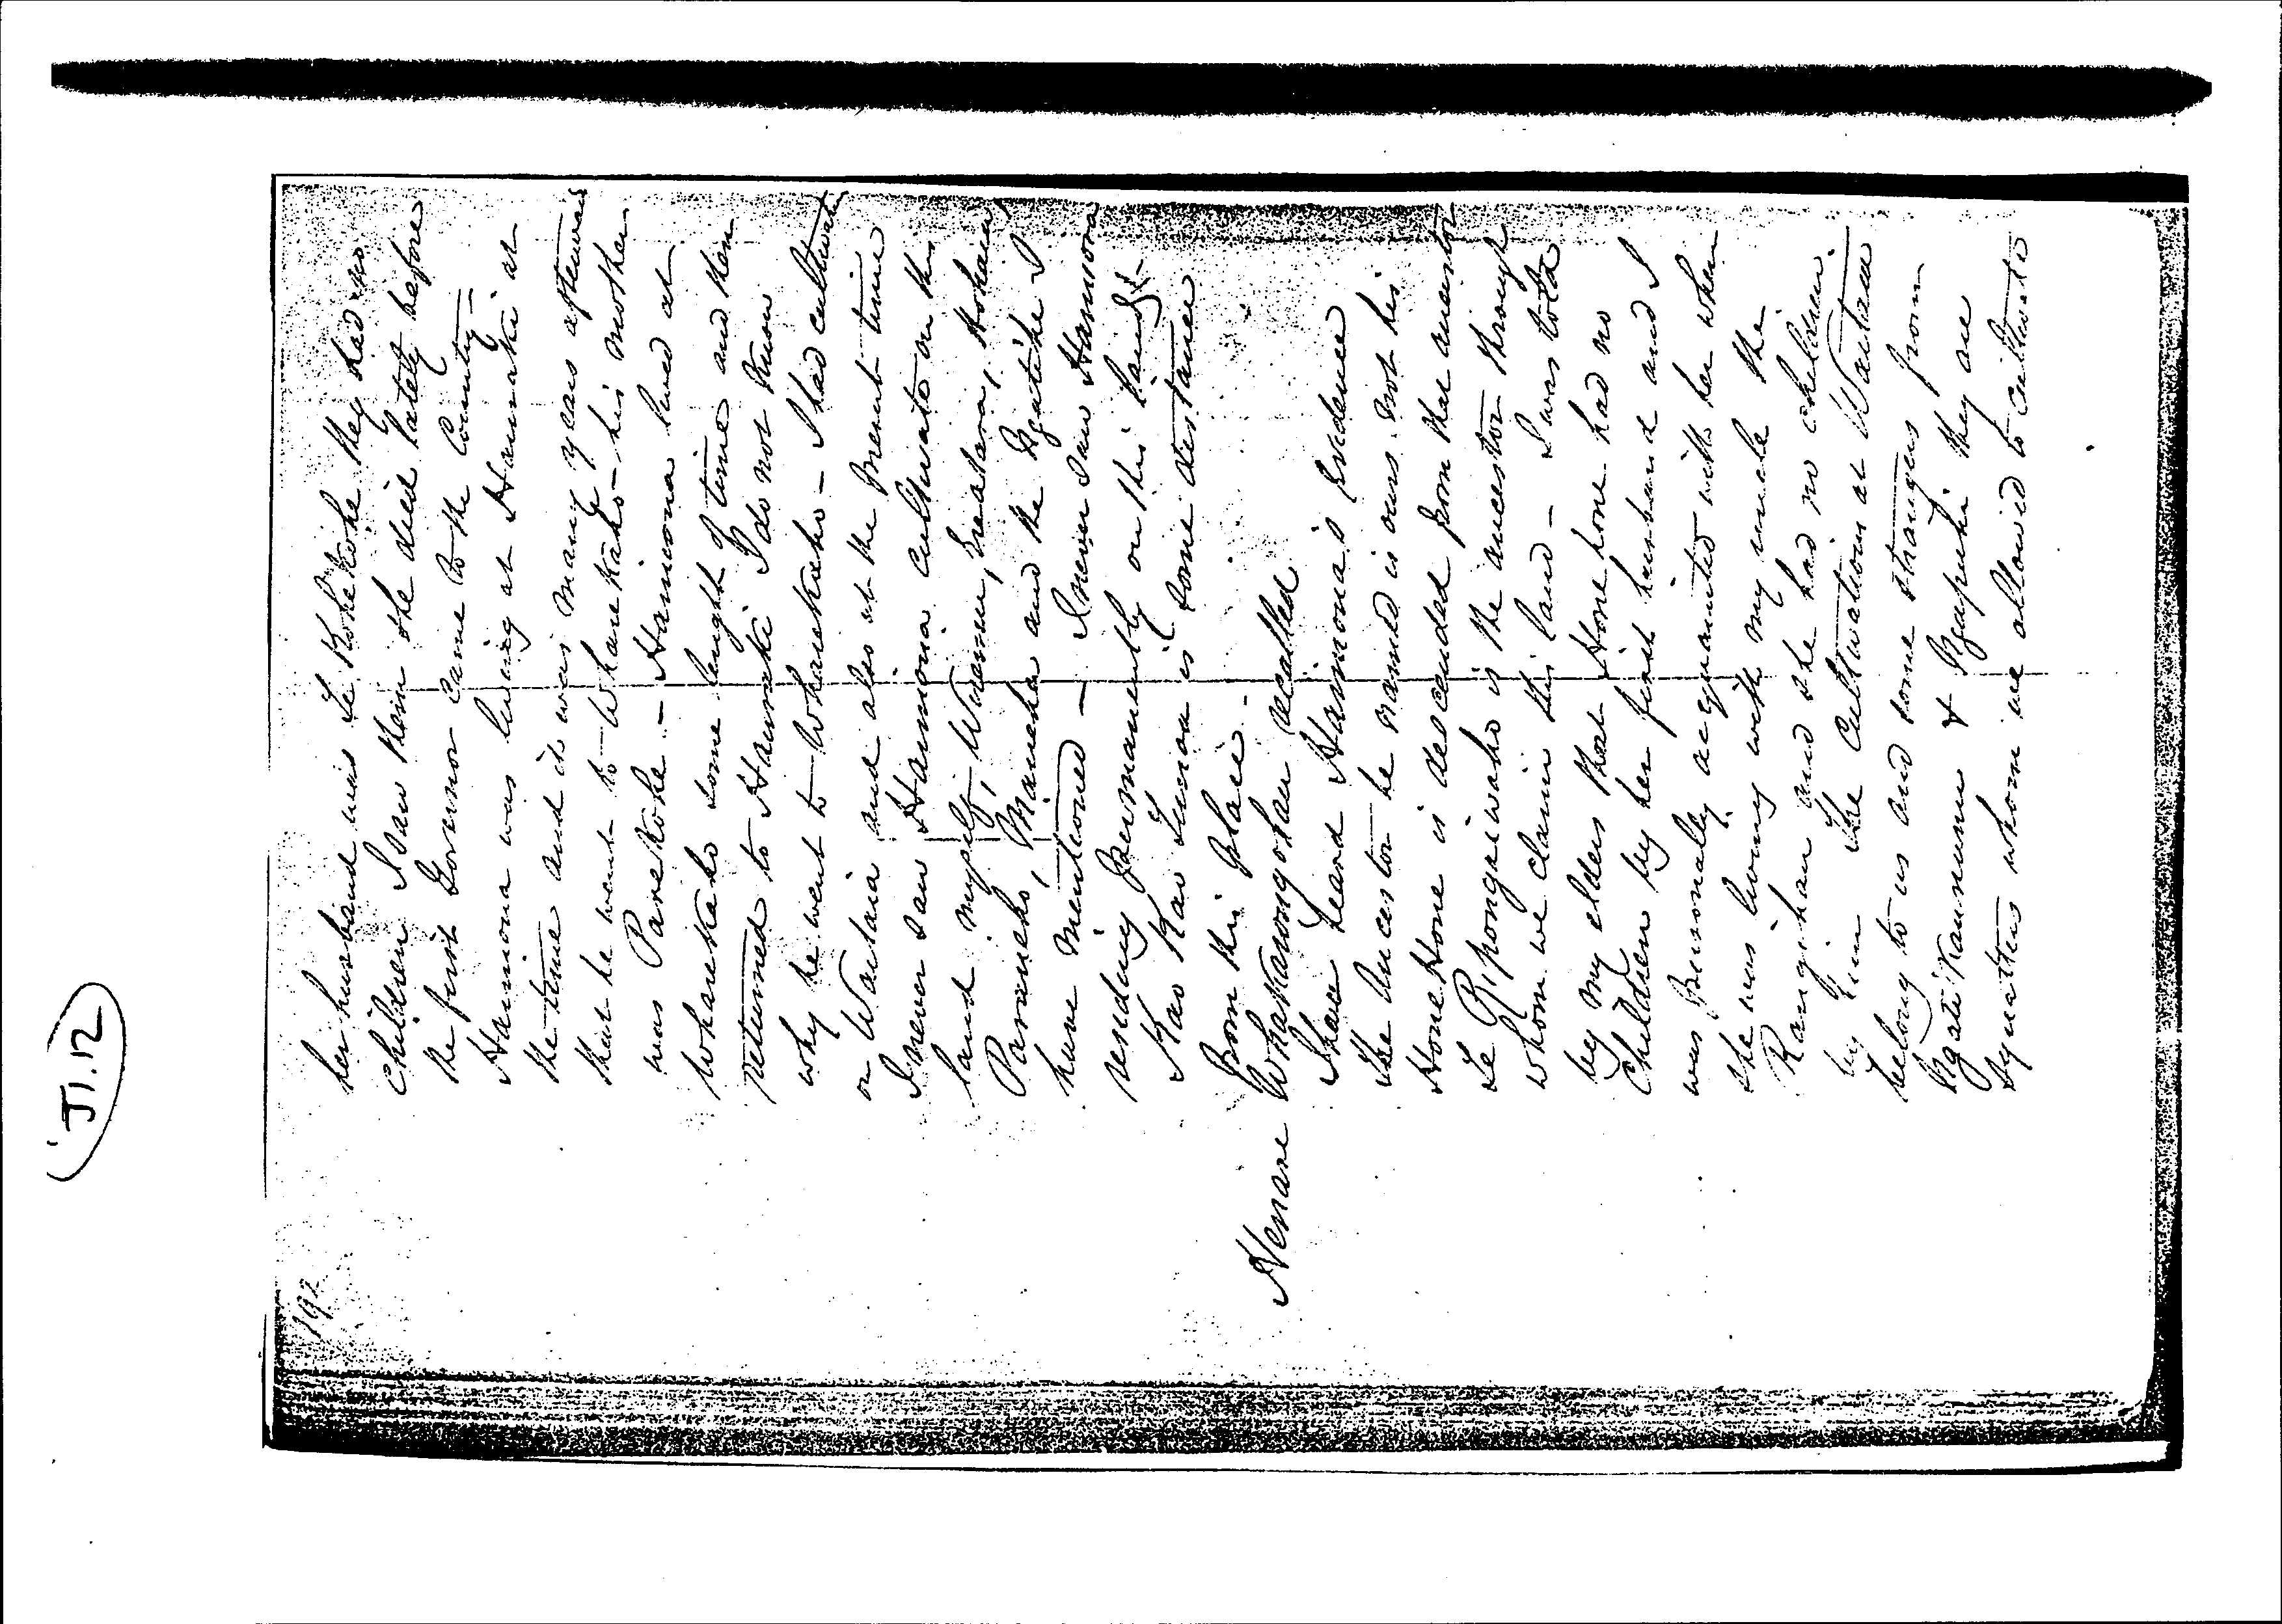 J1.12
192
her husband was Te Kohekohe they had no
children I saw them she died lately before
the first Governor came to the Country –
Hamiona was living at Hauraki at
the time and it was many years afterwards
that he went to Wharekaho – his mother
was Parekohe – Hamiona lived at
Wharekaho some length of time and then
returned to Hauraki I do not know
why he went to Wharekaho – I had cultivated
on Waitaia and also at the present time
I never saw Hamiona cultivate on this
land myself,
have mentioned – I never saw Hamiona
residing permanently on this land
from this place
I have heard Hamiona's Evidence
the Ancestor he named is ours not his
Hone Hone is descended from that ancestor
is the ancestor through
whom we claim this land – I was told
by my elders that Hone hone had no
Children by her first husband and I
was personally acquainted with her when
she was living with my uncle the
Rangihau and she had no children
by him the Cultivations at Waitaia
belong to us and some strangers from
they are
squatters whom we allowed to cultivate